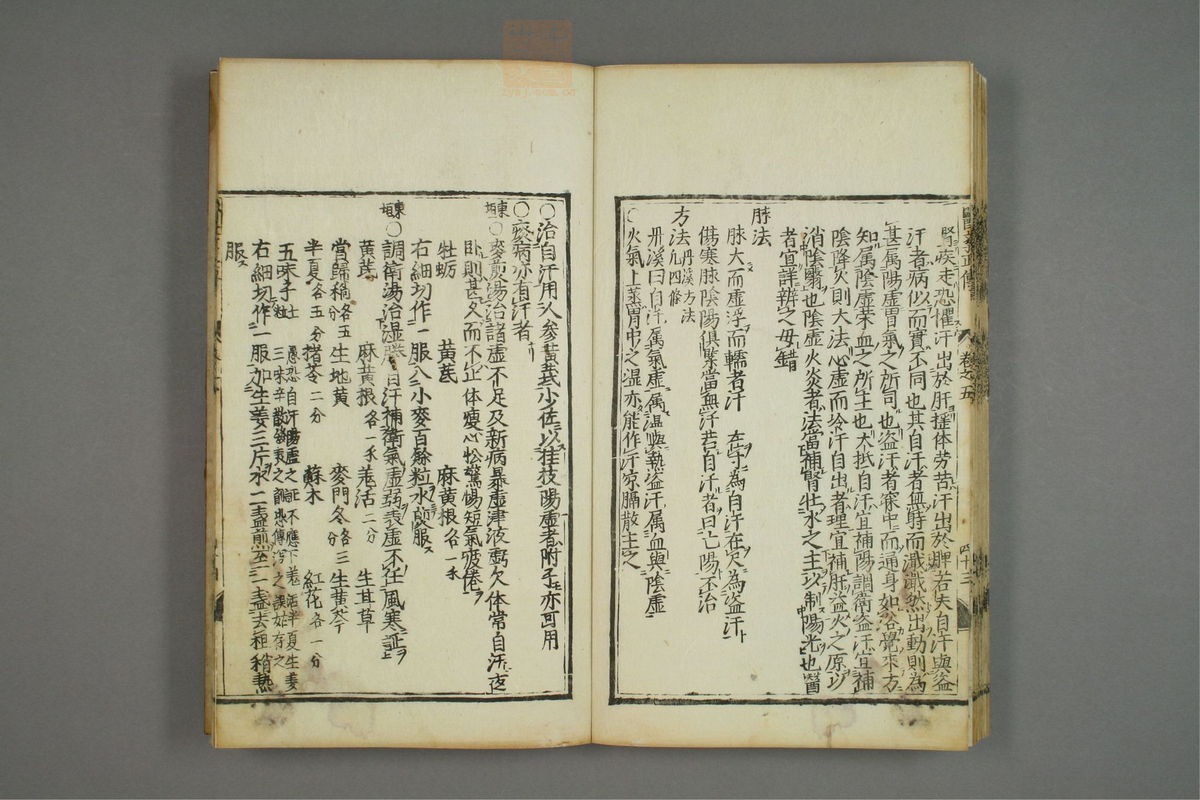 腎疾走恐懼汗出於肝搖体劳苦汗出於脾若夫自汗與盗
汗者病似而實不同也其自汗者無時而濈濈然出動則為
甚属陽虚胃氣之所司也盗汗者寐中而通身如浴覺來方
知属陰虚榮血之所主也大抵自汗宜補陽調衛盗汗宜補
陰降火則大法心虚而冷汗自出者理宜補肝益火之原以
消陰翳也陰虚火炎者法當補腎壮水之主以制陽光也醫
者宜詳辨之毋錯
脉法
脉大而虚浮而軟者汗 在寸為自汗在尺為盗汗
傷寒脉陰陽俱緊當無汗若自汗者曰亡陽不治
方法 丹溪方法 凡四條
丹溪曰自汗属氣虚属湿與熱盗汗属血與陰虚
〇火氣上蒸胃中之湿亦能作汗凉膈散主之
醫學正傳 卷之五 四十三
〇治自汗用人参黄芪少佐以桂枝陽虚者附子亦可用
〇痰病亦有汗者
東垣〇麥煎湯治諸虚不足及新病暴虚津液虧欠体常自汗夜
卧則甚久而不止体瘦心忪驚惕短氣疲倦
牡蛎 黄芪 麻黄根各一
右細切作一服入小麥百餘粒水煎服
東垣〇調衛湯治湿勝自汗補衛氣虚弱表虚不任風寒証
黄芪 麻黄根各一 羗活二分 生甘草
當歸稍各五分 生地黄 麥門冬各三分 生黄芩
半夏各五分 猪苓二分 蘇木 紅花各一分
五味子七粒
右細切作一服加生姜三片水二盞煎至一盞去柤稍熱
服